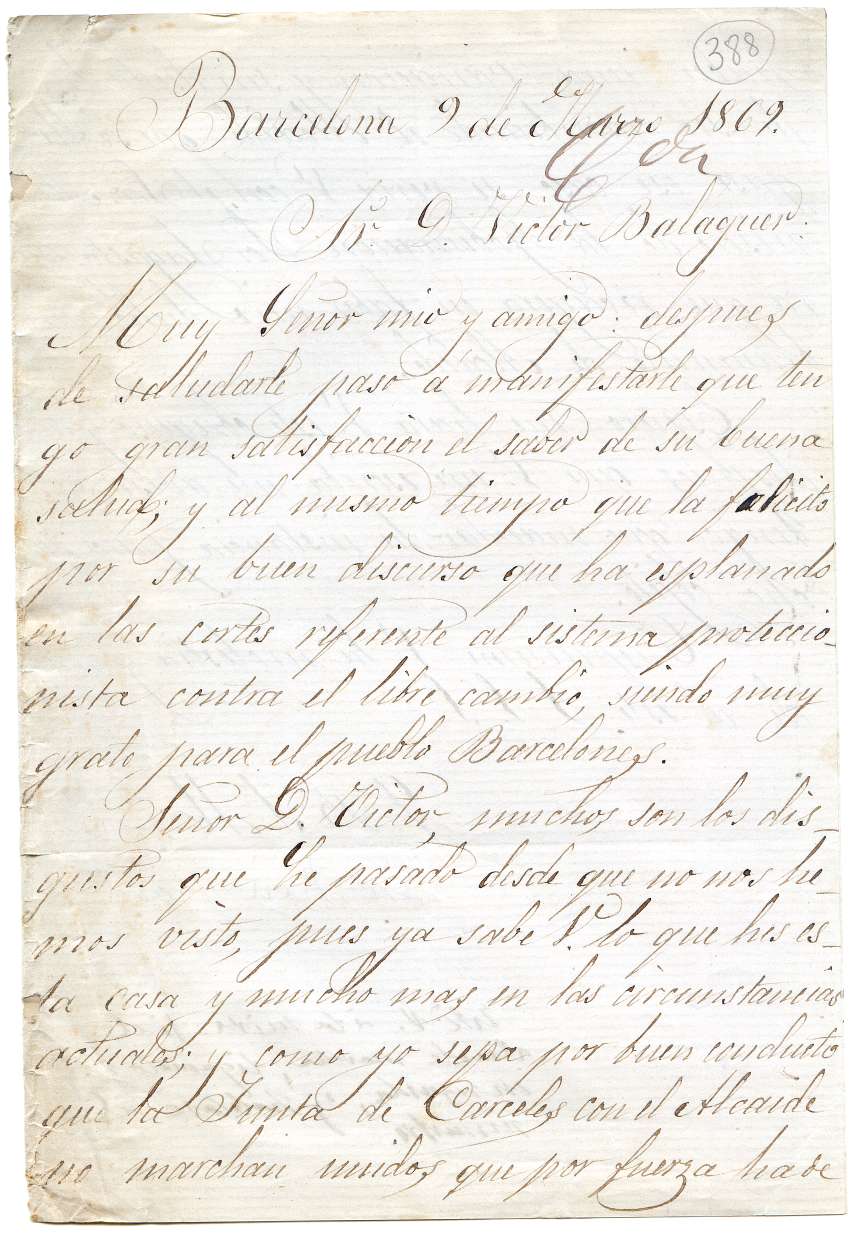 388
Barcelona 9 de Marzo 1869.
Sr. D. Victor Balaguer.
Muy Señor mio y amigo: despues
de saludarle paso á manifestarle que ten
go gran satisfaccion el saber de su buena
salud; y al mismo tiempo que la falicito
por su buen discurso que ha esplanado
en las cortes referente al sistema proteccio-
nista contra el libre cambio, siendo muy
grato para el pueblo Barcelones.
Señor D. Victor, muchos son los dis-
gustos que he pasado desde que no nos he-
mos visto, pues ya sabe V. lo que hes es-
ta casa y mucho mas en las circunstancias
actuales; y como yo sepa por buen conducto
que la Junta de Carceles con el Alcaide
no marchan unidos que por fuerza ha de